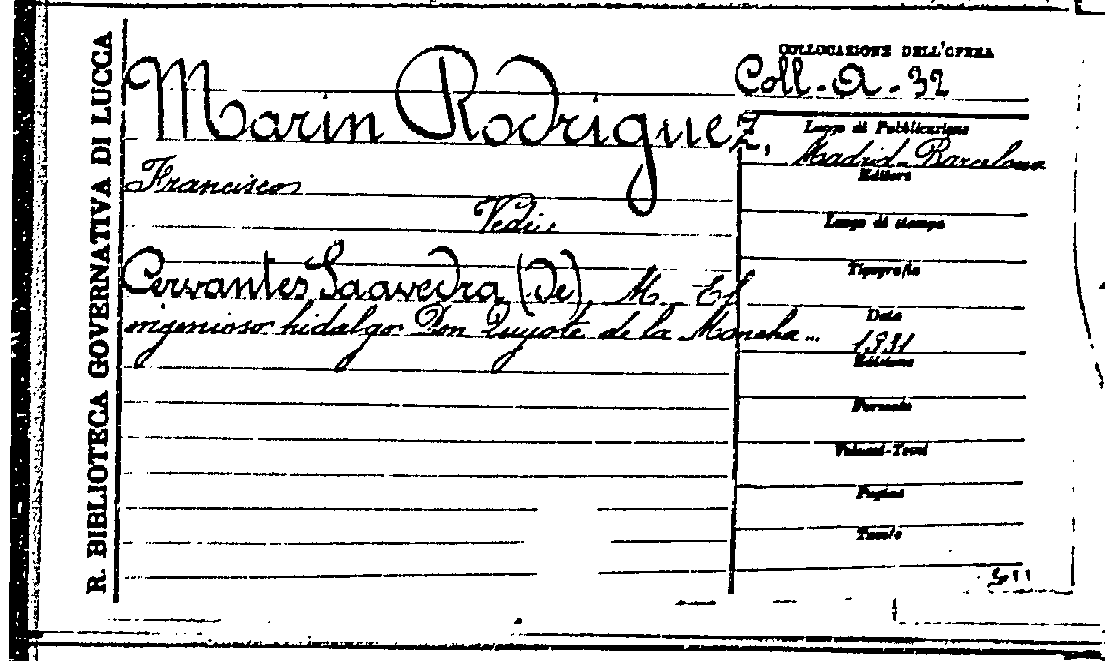 R. BIBLIOTECA GOVERNATIVA DI LUCCA
Marin Rodriguez,
Francisco
Vedi:
Cervantes Saavedra (De), M. - El
ingenioso hidalgo Don Quijote de la Mancha...
COLLOCAZIONE DELL'OPERA
Coll. - A - 32
Luogo di Pubblicazione
Madrid - Barcelona
Editore
Luogo di stampa
Tipografia
Data
1931
Edizione
Formato
Volumi-Tomi
Pagine
Tavole